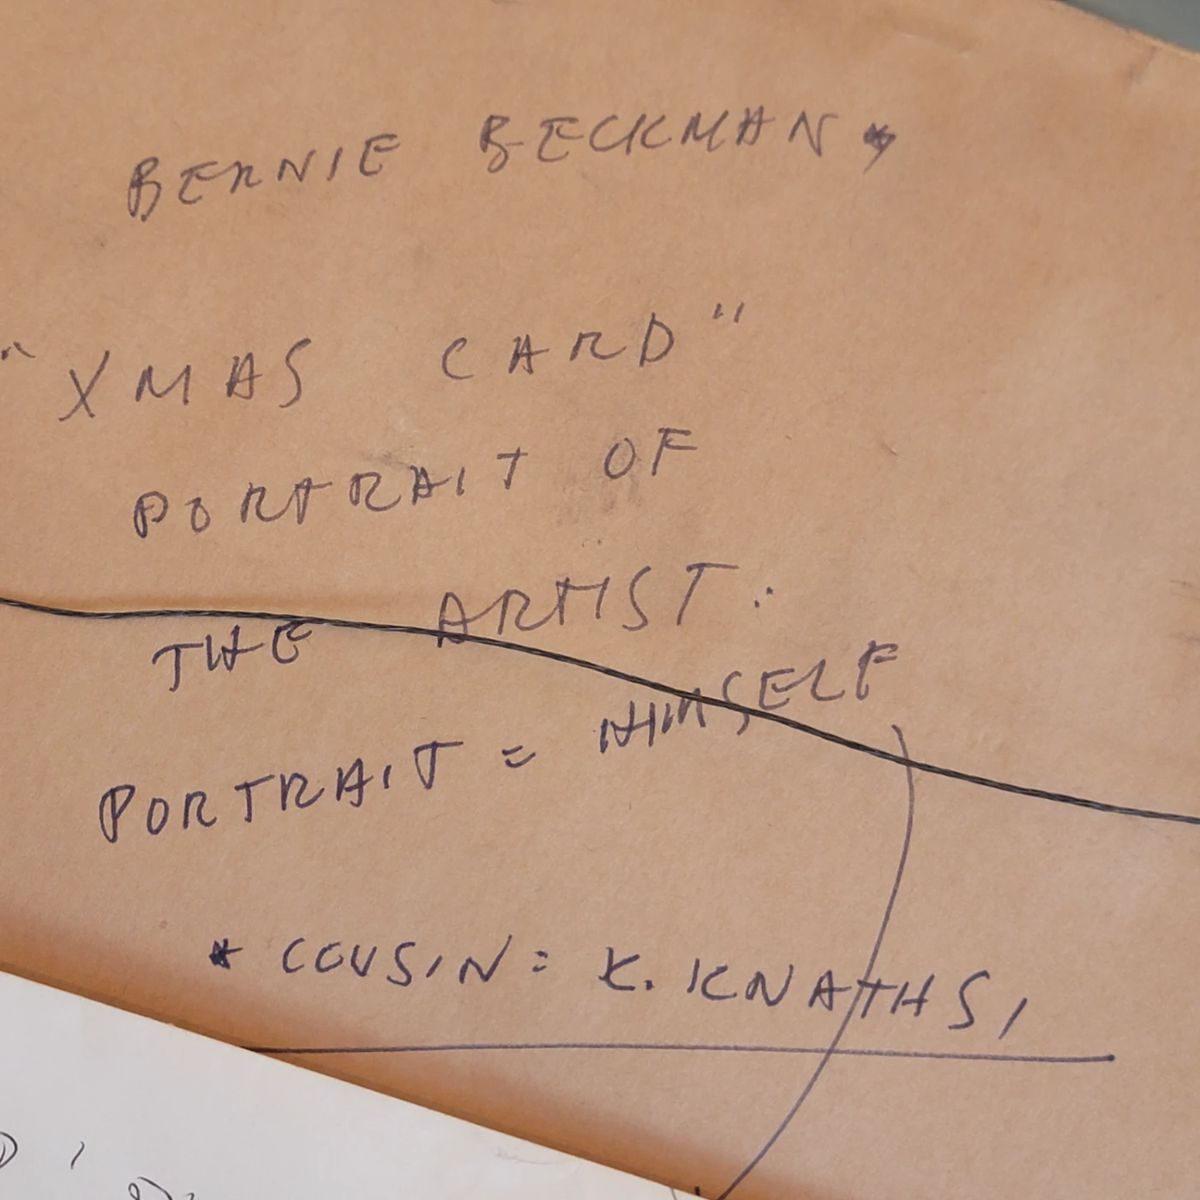 BERNIE BECKMAN *
"XMAS CARD"
PORTRAIT OF
THE ARTIST:
PORTRAIT = HIMSELF
* COUSIN = K. KNATHS,